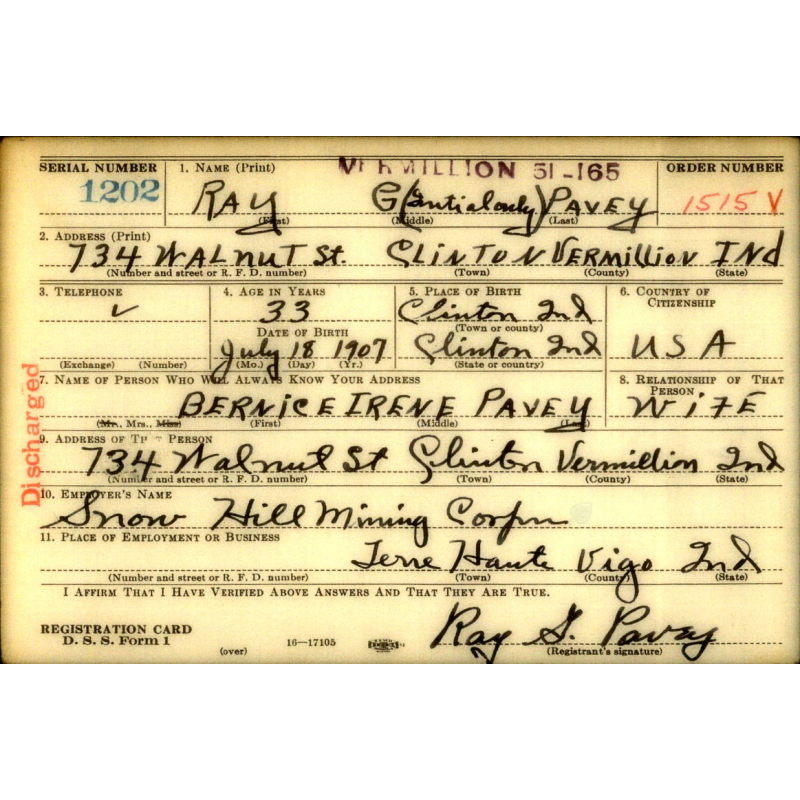 SERIAL NUMBER 1. NAME (Print) VERMILLION 51-165 ORDER NUMBER
1202 RAY G (initial only) PAVEY 1515 V
(First) (Middle) (Last)
2. ADDRESS (Print)
734 WALNUT St. CLINTON VERMILLION IND
(Number and street or R. F. D. number) (Town) (County) (State)
3. TELEPHONE 4. AGE IN YEARS 5. PLACE OF BIRTH 6. COUNTRY OF CITIZENSHIP
33 Clinton Ind
DATE OF BIRTH (Town or county)
July 18 1907 Clinton Ind USA
(Exchange) (Number) (Mo.) (Day) (Yr.) (State or country)
Discharged
7. NAME OF PERSON WHO WILL ALWAYS KNOW YOUR ADDRESS 8. RELATIONSHIP OF THAT PERSON
BERNICE IRENE PAVEY WIFE
(Mr., Mrs., Miss) (First) (Middle) (Last)
9. ADDRESS OF THAT PERSON
734 Walnut St Clinton Vermillion Ind
(Number and street or R. F. D. number) (Town) (County) (State)
10. EMPLOYER'S NAME
Snow Hill Mining Corpn
11. PLACE OF EMPLOYMENT OR BUSINESS
Terre Haute Vigo Ind
(Number and street or R. F. D. number) (Town) (County) (State)
I AFFIRM THAT I HAVE VERIFIED ABOVE ANSWERS AND THAT THEY ARE TRUE.
REGISTRATION CARD
D. S. S. Form 1 (over) 16—17105 Ray G. Pavey
(Registrant's signature)